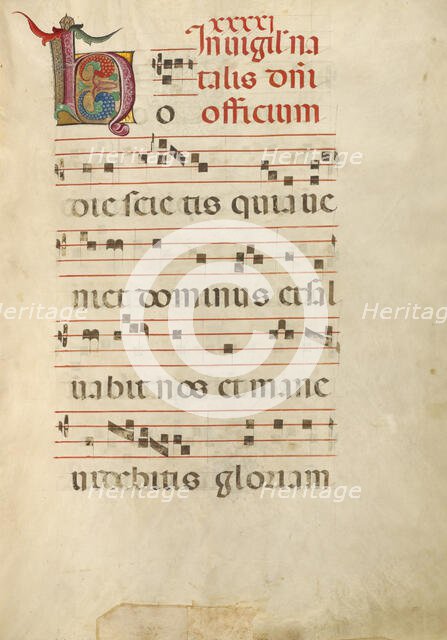 xxxxj
In uigil' na
talis dñi
H o officium
Heritage Heritage
die scie tis quia ue
niet dominus et sal
Heritage Heritage
uabit nos et mane
uidebitis gloriam
Heritage Heritage